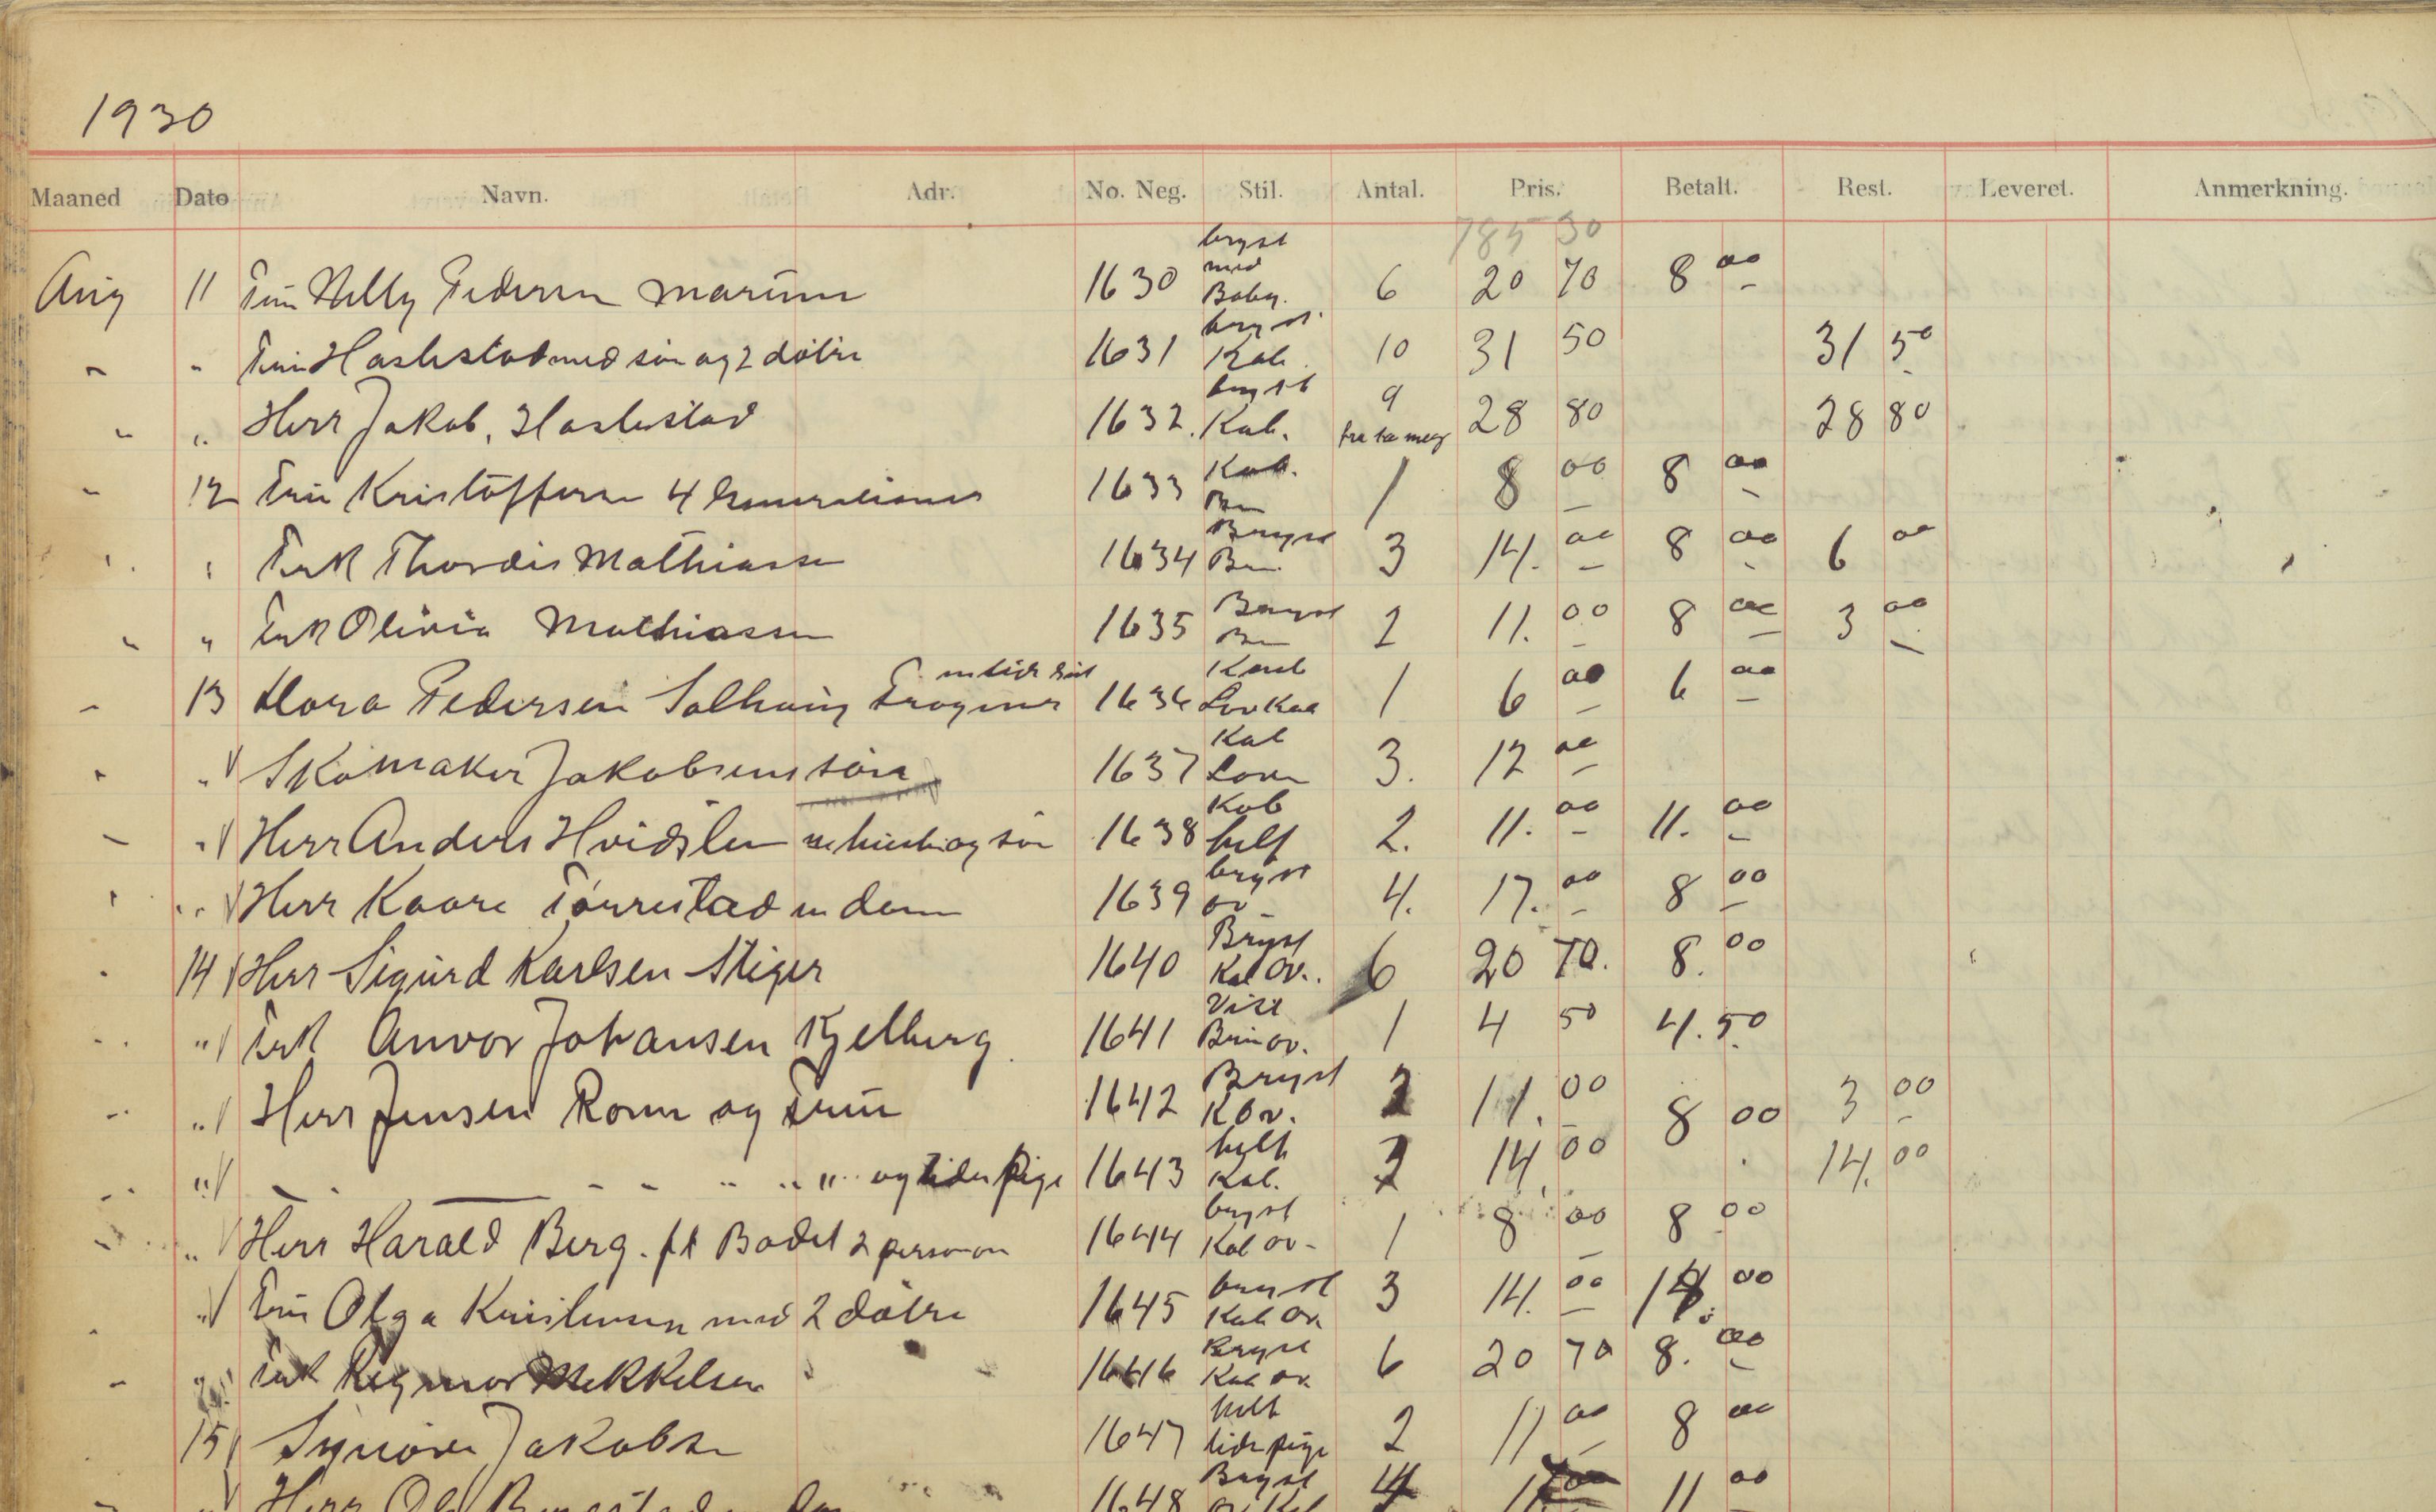 1930
Maaned Dato Navn. Adr. No. Neg. Stil. Antal. Pris. Betalt. Rest. Leveret. Anmerkning.
785 30
Aug 11 Fru Nelly Pedersen 1630 bryst med Baby. 6 20 70 8 00
" " Fru Haslestad med søn og 2 døtre 1631 bryst Kab. 10 31 50 31 50
" " Herr Jakob. Haslestad 1632. bryst Kab. 9 28 80 28 80
" 12 Fru Kristoffersen 4 Generationer 1633 Kab. 1 8 00 8 00
" " Frk Thordis Mathiassen 1634 Bryst 3 14. 00 8 00 6 00
" " Frk Olivia Mathiassen 1635 Bryst 2 11. 00 8 00 3 00
" 13 Pedersen 1636 1 6 00 6 00
" " Skomaker Jakobsens 1637 Kab 3. 12 00
" " Herr Anders og søn 1638 Kab helf 2. 11. 00 11. 00
" " Herr Kaare Tørrestad m dame 1639 bryst ov 4. 17. 00 8 00
" 14 Herr Sigurd Karlsen Stiger 1640 Bryst Kab ov. 6 20 70. 8. 00
" " Frk Anvor Johansen Kjelberg 1641 Visit Brun ov. 1 4 50 4. 50
" " Herr Jensen og Frue 1642 Bryst K Ov. 2 11. 00 8 00 3 00
" " " " " " og liden Pige 1643 helf Kab. 14 00 14. 00
" " Herr Harald Berg. ft Badet 2 personer 1644 bryst Kab ov- 1 8 00 8 00
" " Fru Olga Kristensen med 2 døtre 1645 bryst Kab ov. 3 14. 00 14. 00
" " Frk Rigmor Mekkelsen 1646 Bryst Kab ov. 6 20 70 8. 00
15 Synøve Jakobsen 1647 helf liden pige 2 11 00 8 00
" Herr 1648 Bryst 11 00